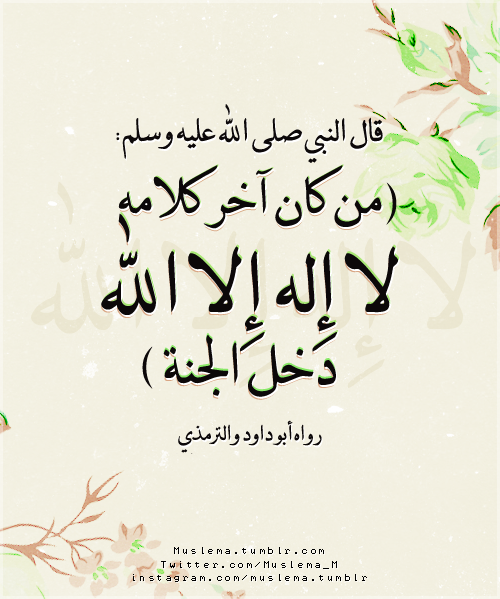 قال النبي صلى الله عليه وسلم:
(من كان آخر كلامه
لا إله إلا الله
دخل الجنة )
رواه أبو داود والترمذي
Muslema.tumblr.com
Twitter.com/Muslema_M
instagram.com/muslema.tumblr